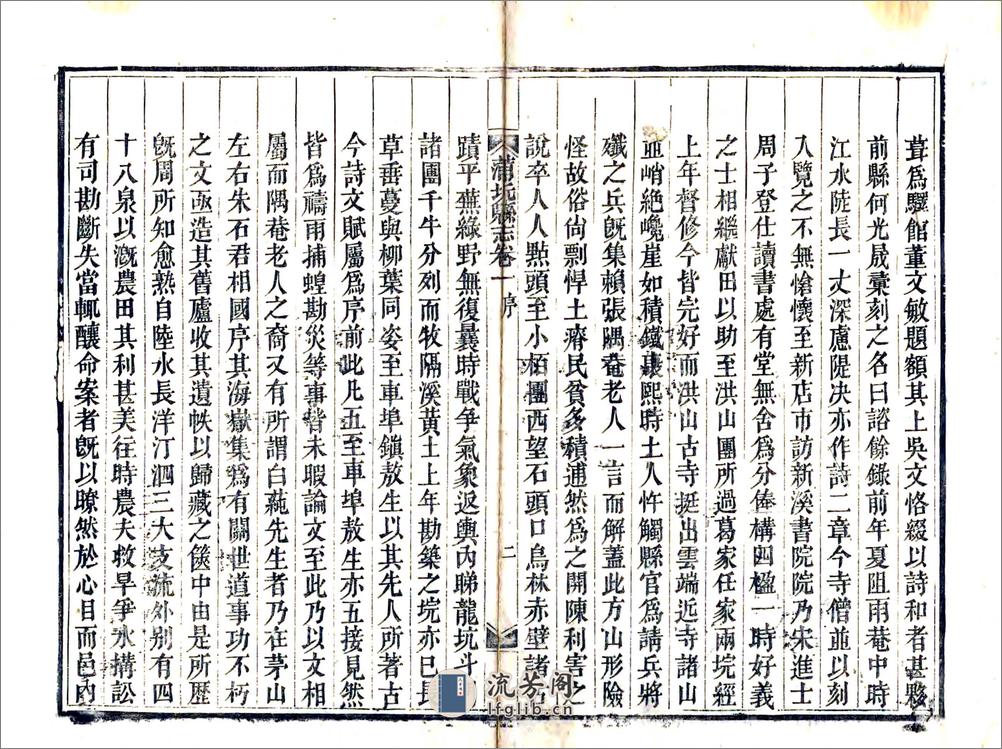 葺爲驛館董文敏題額其上吳文恪綴以詩和者甚夥
前縣何光晟彙刻之名曰諮餘錄前年夏阻雨菴中時
江水陡長一丈深慮隄决亦作詩二章今寺僧並以刻
入覽之不無愴懷至新店市訪新溪書院院乃宋進士
周子登仕讀書處有堂無舍爲分俸構四楹一時好義
之士相繼獻田以助至洪山團所過葛家任家兩垸經
上年督修今皆完好而洪山古寺挺出雲端近寺諸山
並峭絶巉崖如積鐵康熙時土人忤觸縣官爲請兵將
殲之兵旣集賴張隅菴老人一言而解蓋此方山形險
怪故俗尙剽悍土瘠民貧多積逋然爲之開陳利害之
說卒人人點頭至小栢團西望石頭口烏林赤壁諸
蒲圻縣志卷一 序 二
蹟平蕪綠野無復曩時戰爭氣象返輿內睇龍坑斗
諸團千牛分列而牧隔溪黃土上年勘築之垸亦已長
草垂蔓與柳葉同姿至車埠鎭敖生以其先人所著古
今詩文賦屬爲序前此凡五至車埠敖生亦五接見然
皆爲禱雨捕蝗勘災等事皆未暇論文至此乃以文相
屬而隅菴老人之裔又有所謂白蒓先生者乃在茅山
左右朱石君相國序其海嶽集爲有關世道事功不朽
之文亟造其舊廬收其遺帙以歸藏之篋中由是所歷
旣周所知愈熟自陸水長洋汀泗三大支流外别有四
十八泉以漑農田其利甚美往時農夫救旱爭水搆訟
有司勘斷失當輒釀命案者旣以瞭然於心目而邑內
流芳阁
lfglib.cn